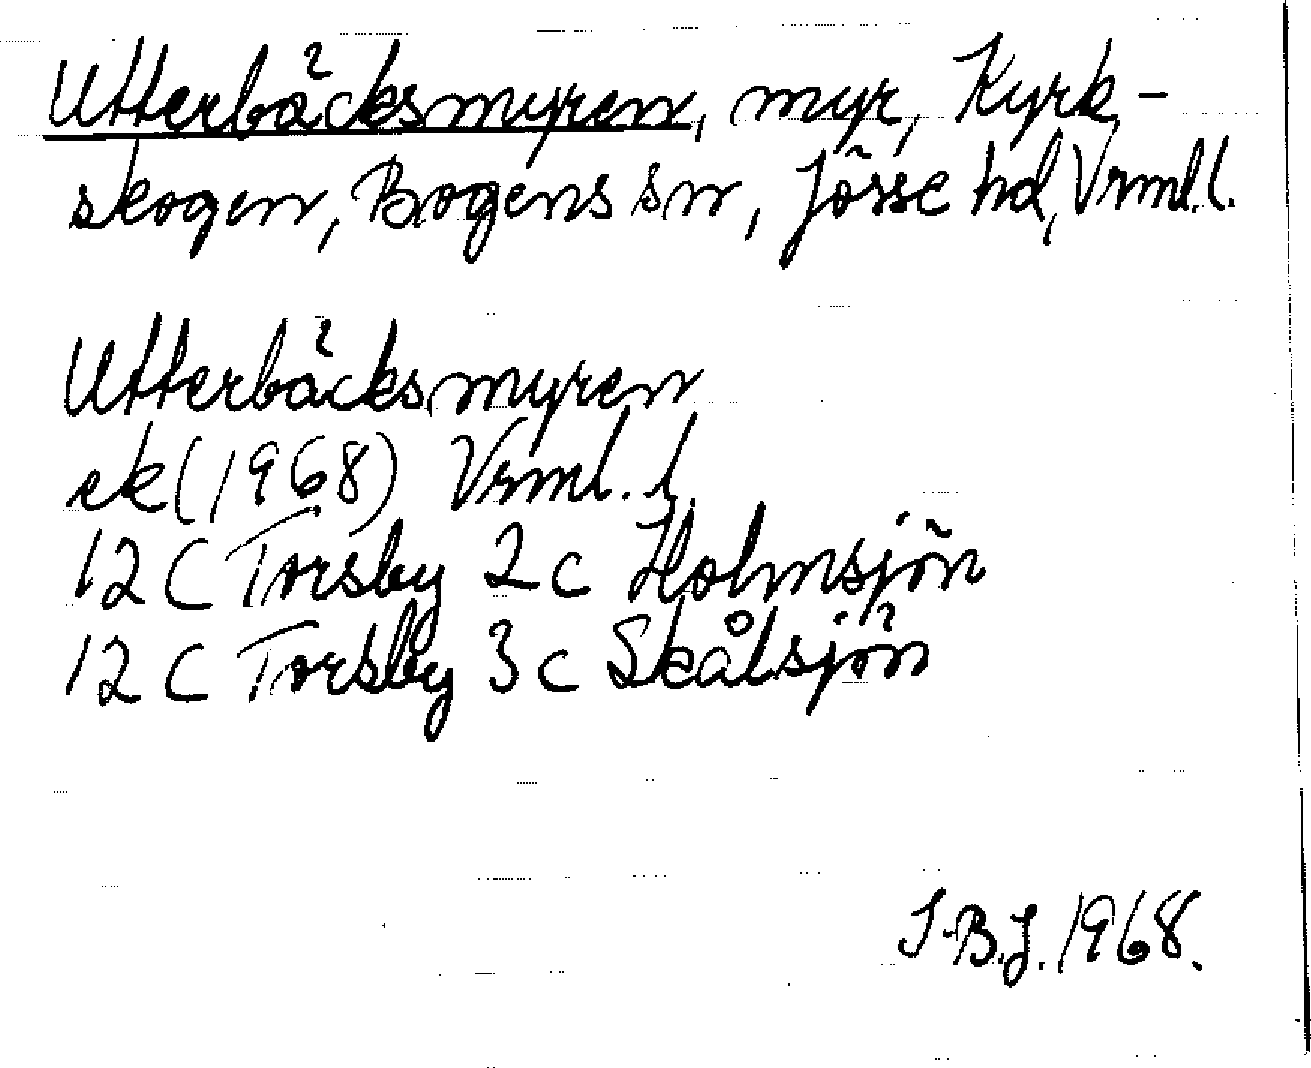 Utterbäcksmyren, myr, Kyrk-
skogen, Bogens sn, Jösse hd, Vrml.l.
Utterbäcksmyren
ek (1968) Vrml. l.
12 C Torsby 2 c Holmsjön
12 C Torsby 3 c Skålsjön
I-B.J. 1968.